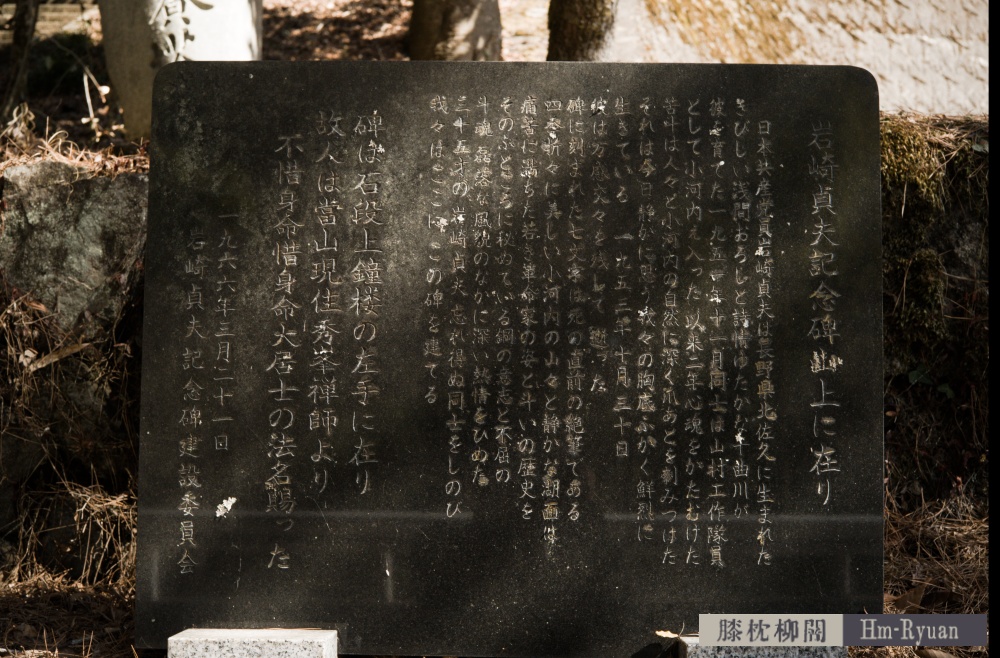 岩崎貞夫記念碑山上に在り
日本共産党員岩崎貞夫は長野県北佐久に生まれた
きびしい浅間おろしと詩情ゆたかな千曲川が
彼を育てた一九五二年十一月同士は山村工作隊員
として小河内え入った 以来二年心魂をかたむけた
苦斗は人々と小河内の自然に深く爪あとを刻みつけた
それは今日静かに想う我々の胸底ふかく鮮烈に
生きている 一九五三年十月三十日
彼は万感交々を して逝った
碑に刻まれた七文字は死の直前の絶筆である
四季折々に美しい小河内の山々と静かな湖面は
痛苦に満ちた若き革命家の姿と斗いの歴史を
そのふところに秘めている鋼の意志と不屈の
斗魂磊落な風貌のなかに深い熱情をひめた
三十五才の岩崎貞夫忘れ得ぬ同士をしのび
我々はここにこの碑を建てる
碑は石段上鐘楼の左手に在り
故人は當山現住秀峯禅師より
不惜身命惜身命大居士の法名賜った
一九六六年三月二十一日
岩崎貞夫記念碑建設委員会
膝枕柳閣
Hm-Ryuan